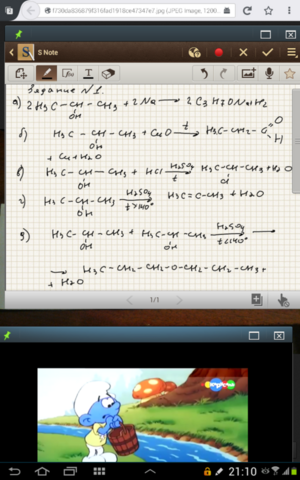 f738da836879f316fad1918ce47347e7.jpg (JPEG Image, 1280...
S Note
Задание N1.
а) 2H3C – CH – CH3 + 2Na ⟶ 2C3H7ONa + H2
OH
б) H3C – CH – CH3 + CuO ⟶ H3C – CH2 – C O
t
OH H
+ Cu + H2O
в) H3C – CH – CH3 + HCl ⟶ H3C – CH – CH3 + H2O
H2SO4
t
OH Cl
г) H3C – CH – CH3 ⟶ H3C = C – CH3 + H2O
H2SO4
t>140°
OH
д) H3C – CH – CH3 + H3C – CH – CH3 ⟶
H2SO4
t<140°
OH OH
⟶ H3C – CH2 – CH2 – O – CH2 – CH2 – CH3 +
+ H2O
1/1
21:10